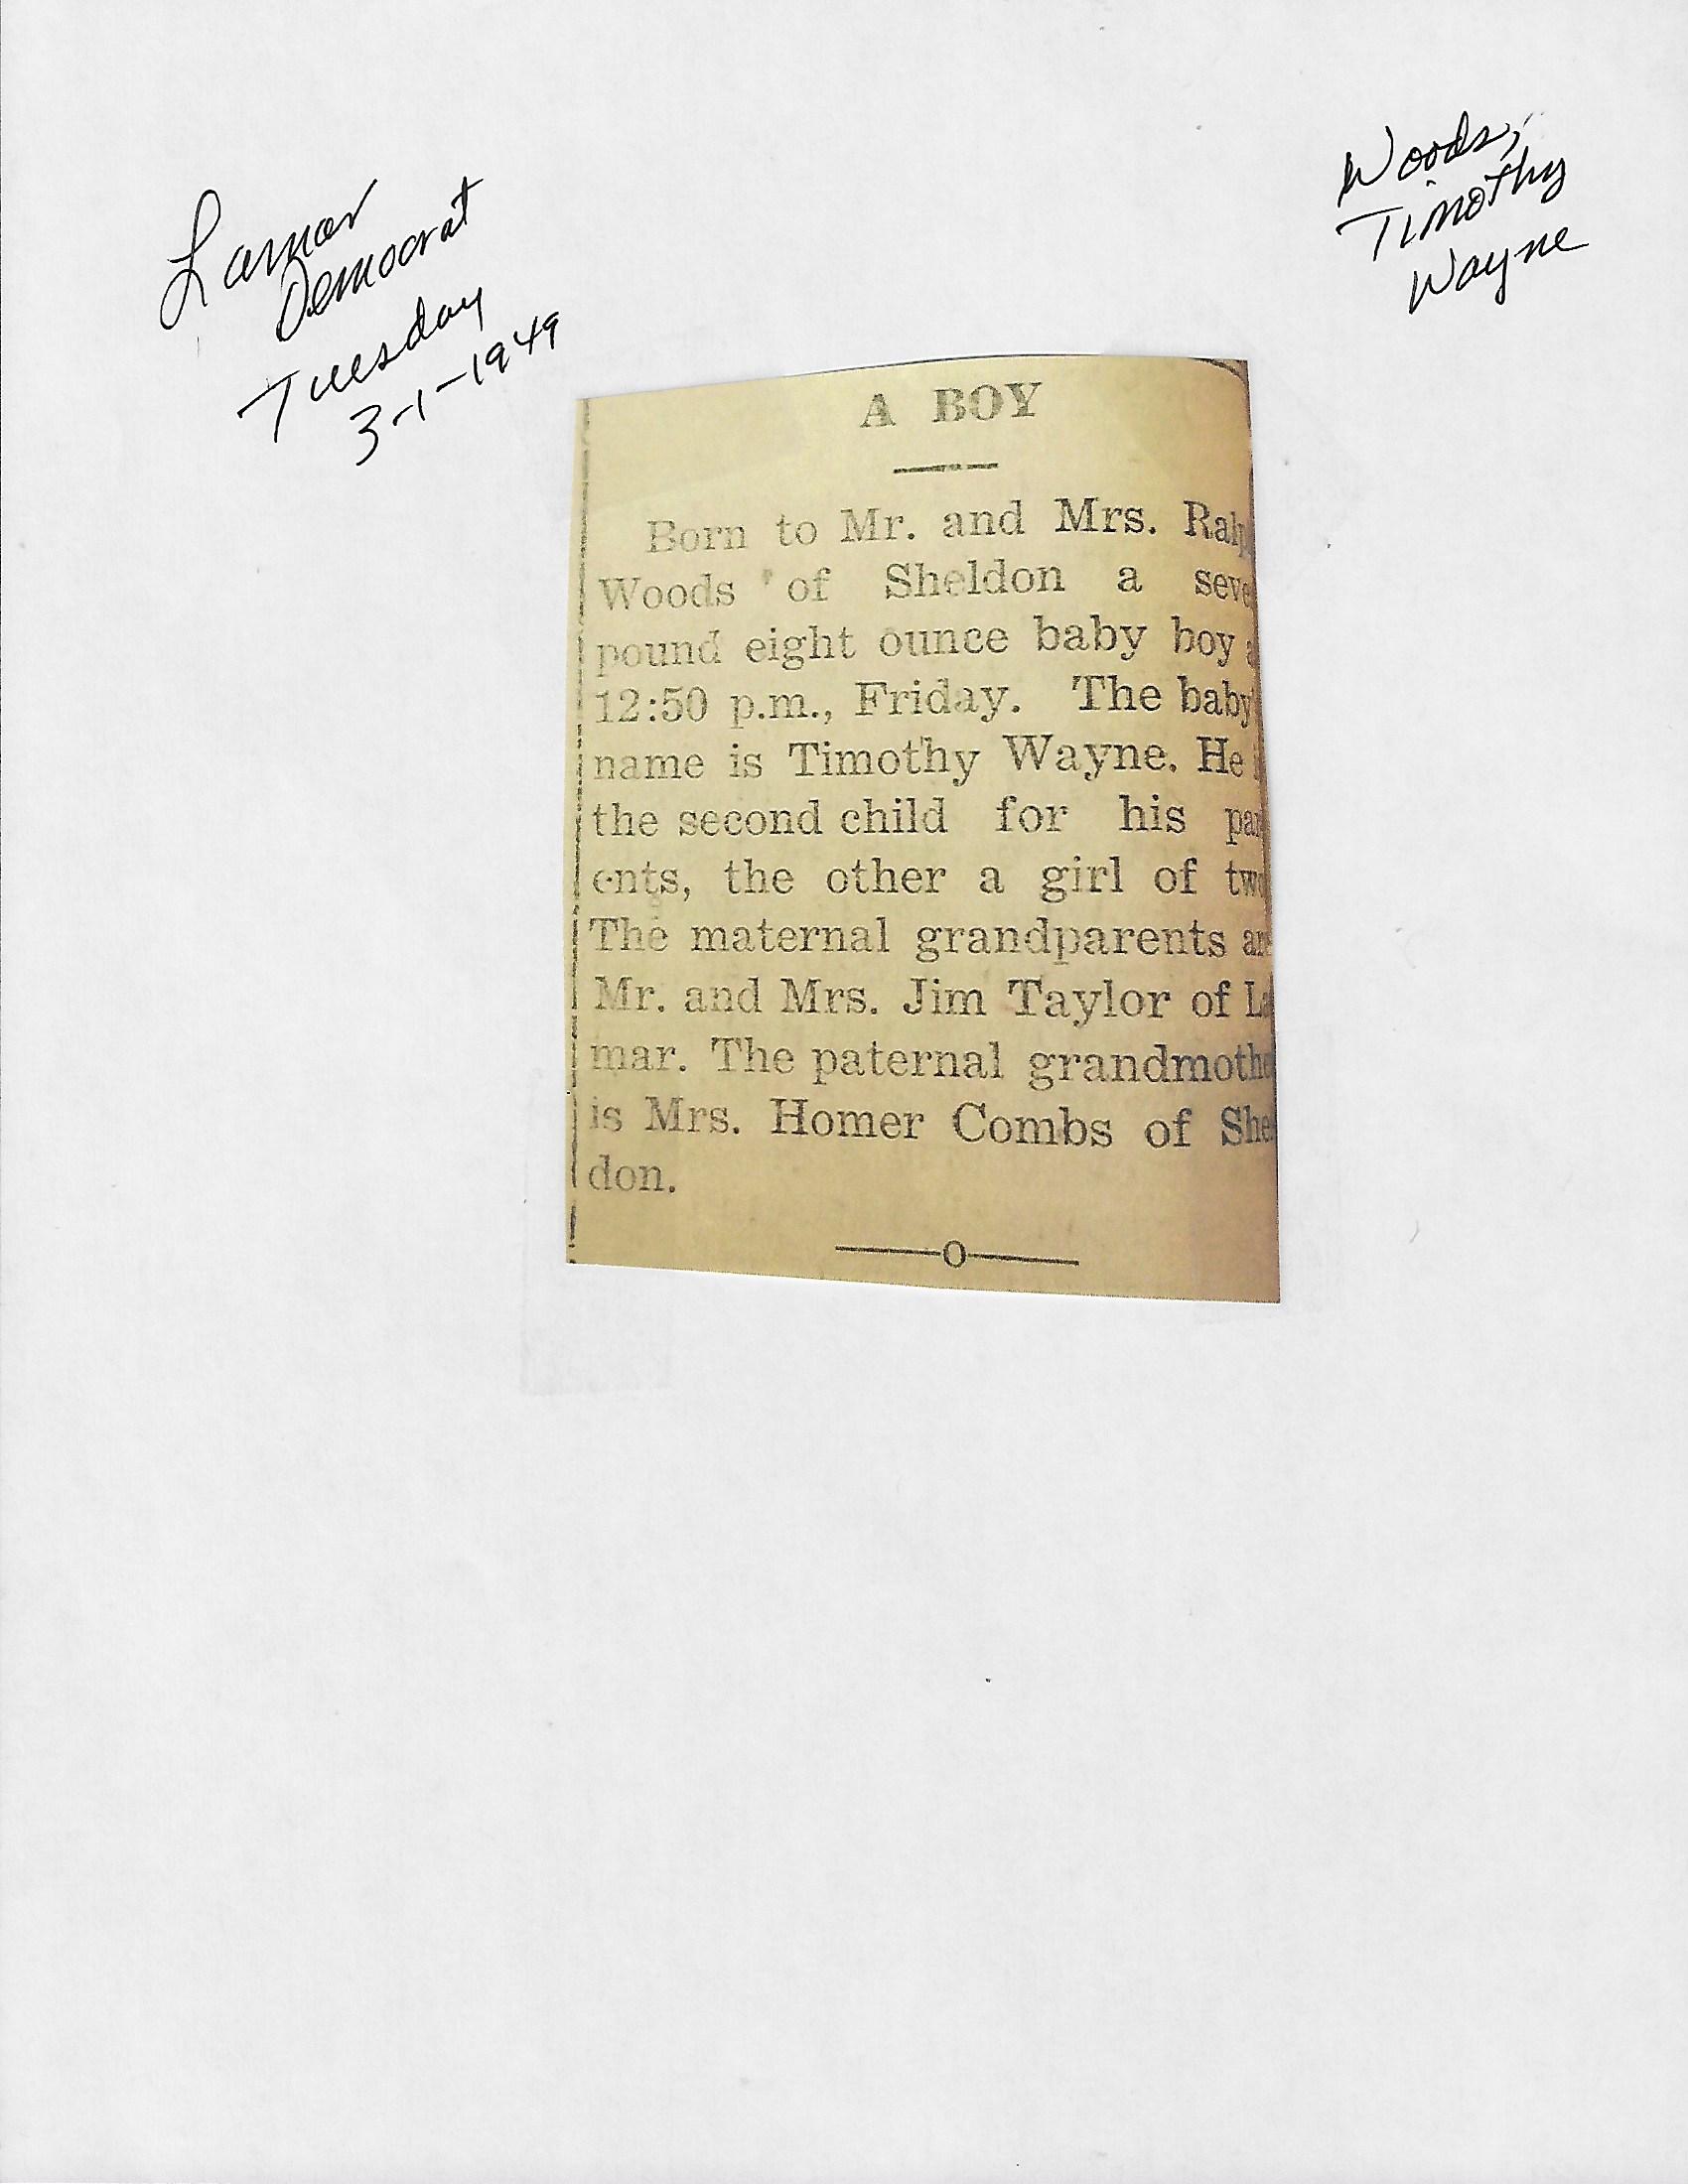 Lamar
Democrat
Tuesday
3-1-1949
Woods,
Timothy
Wayne
A BOY
Born to Mr. and Mrs. Ral
Woods of Sheldon a seve
pound eight ounce baby boy a
12:50 p.m., Friday. The baby'
name is Timothy Wayne. He i
the second child for his par
ents, the other a girl of two
The maternal grandparents are
Mr. and Mrs. Jim Taylor of La
mar. The paternal grandmothe
is Mrs. Homer Combs of She
don.